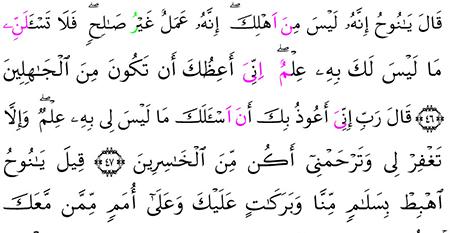 قَالَ يَٰنُوحُ إِنَّهُۥ لَيْسَ مِنَ اَهْلِكَۖ إِنَّهُۥ عَمَلٌ غَيْرُ صَٰلِحٍۖ فَلَا تَسْـَٔلَنِّۦ
مَا لَيْسَ لَكَ بِهِۦ عِلْمٌۖ اِنِّيَ أَعِظُكَ أَن تَكُونَ مِنَ ٱلْجَٰهِلِينَ
﴿٤٦﴾ قَالَ رَبِّ إِنِّيَ أَعُوذُ بِكَ أَنَ اَسْـَٔلَكَ مَا لَيْسَ لِى بِهِۦ عِلْمٌۖ وَإِلَّا
تَغْفِرْ لِى وَتَرْحَمْنِىٓ أَكُن مِّنَ ٱلْخَٰسِرِينَ ﴿٤٧﴾ قِيلَ يَٰنُوحُ
ٱهْبِطْ بِسَلَٰمٍ مِّنَّا وَبَرَكَٰتٍ عَلَيْكَ وَعَلَىٰٓ أُمَمٍ مِّمَّن مَّعَكَ